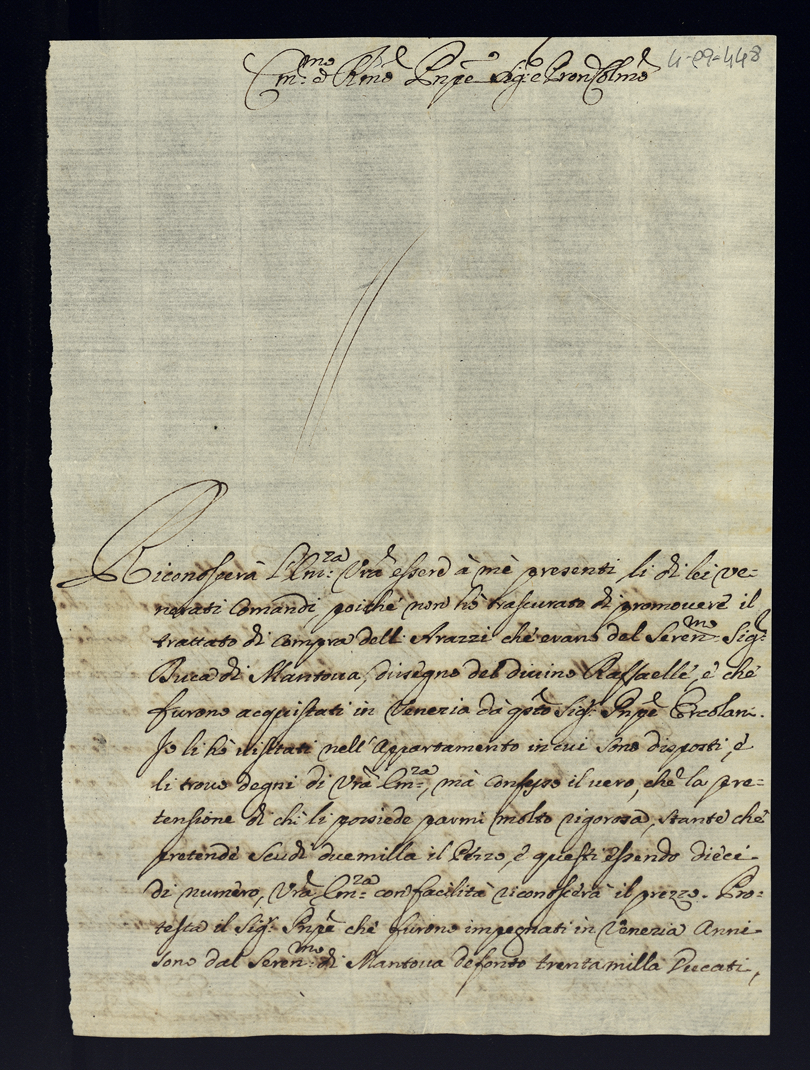 4-09-448
Em.mo e Rmo Pnpe Sig.e e Pron Colmo
Riconoscerà l'Em.za Vra essere à mè presenti li di lei ve=
nerati Comandi poiche non hò trascurato di promovere il
trattato di Compra delli Arazzi che erano del Seren.mo Sig.
Duca di Mantova, dissegno del divino Raffaelle, e che
furono acquistati in Venezia da q.to Sig. Pnpe Ercolani.
Io li hò visitati nell'Appartamento in cui sono disposti, e
li trovo degni di Vra Em.za, mà confesso il vero, che la pre=
tensione di chi li possiede parmi molto rigorosa, stante che
pretende Scudi duemilla il Pezzo, e questi essendo dieci
di numero, Vra Em.za con facilità riconoscerà il prezzo. Pro=
testa il Sig. Pnpe che furono impegnati in Venezia Anni
sono dal Seren.mo di Mantova defonto trentamilla Ducati,